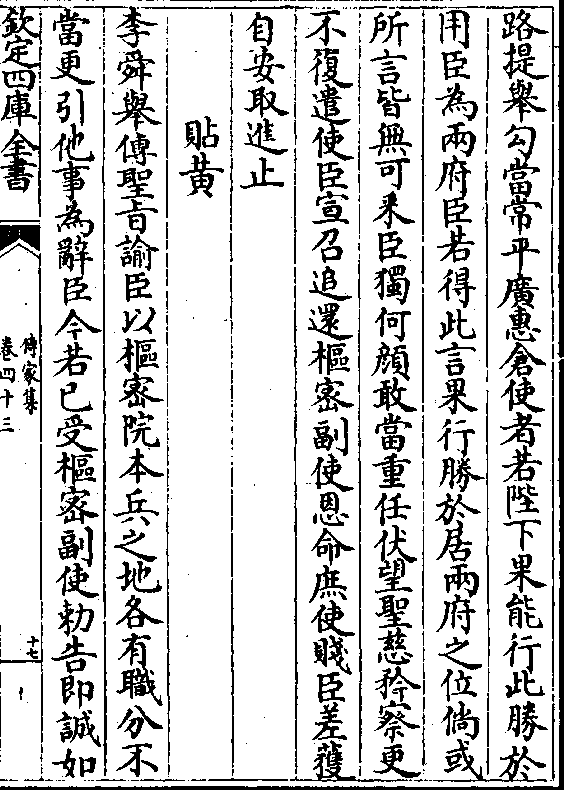 路提舉勾當常平廣惠倉使者若陛下果能行此勝於
用臣為兩府臣若得此言果行勝於居兩府之位倘或
所言皆無可采臣獨何顔敢當重任伏望聖慈矜察更
不復遣使臣宣召追還樞密副使恩命庶使賤臣差獲
自安取進止
貼黄
李舜舉傳聖旨諭臣以樞密院本兵之地各有職分不
當更引他事為辭臣今若已受樞密副使勅告即誠如
欽定四庫全書
傳家集
卷四十三
十七